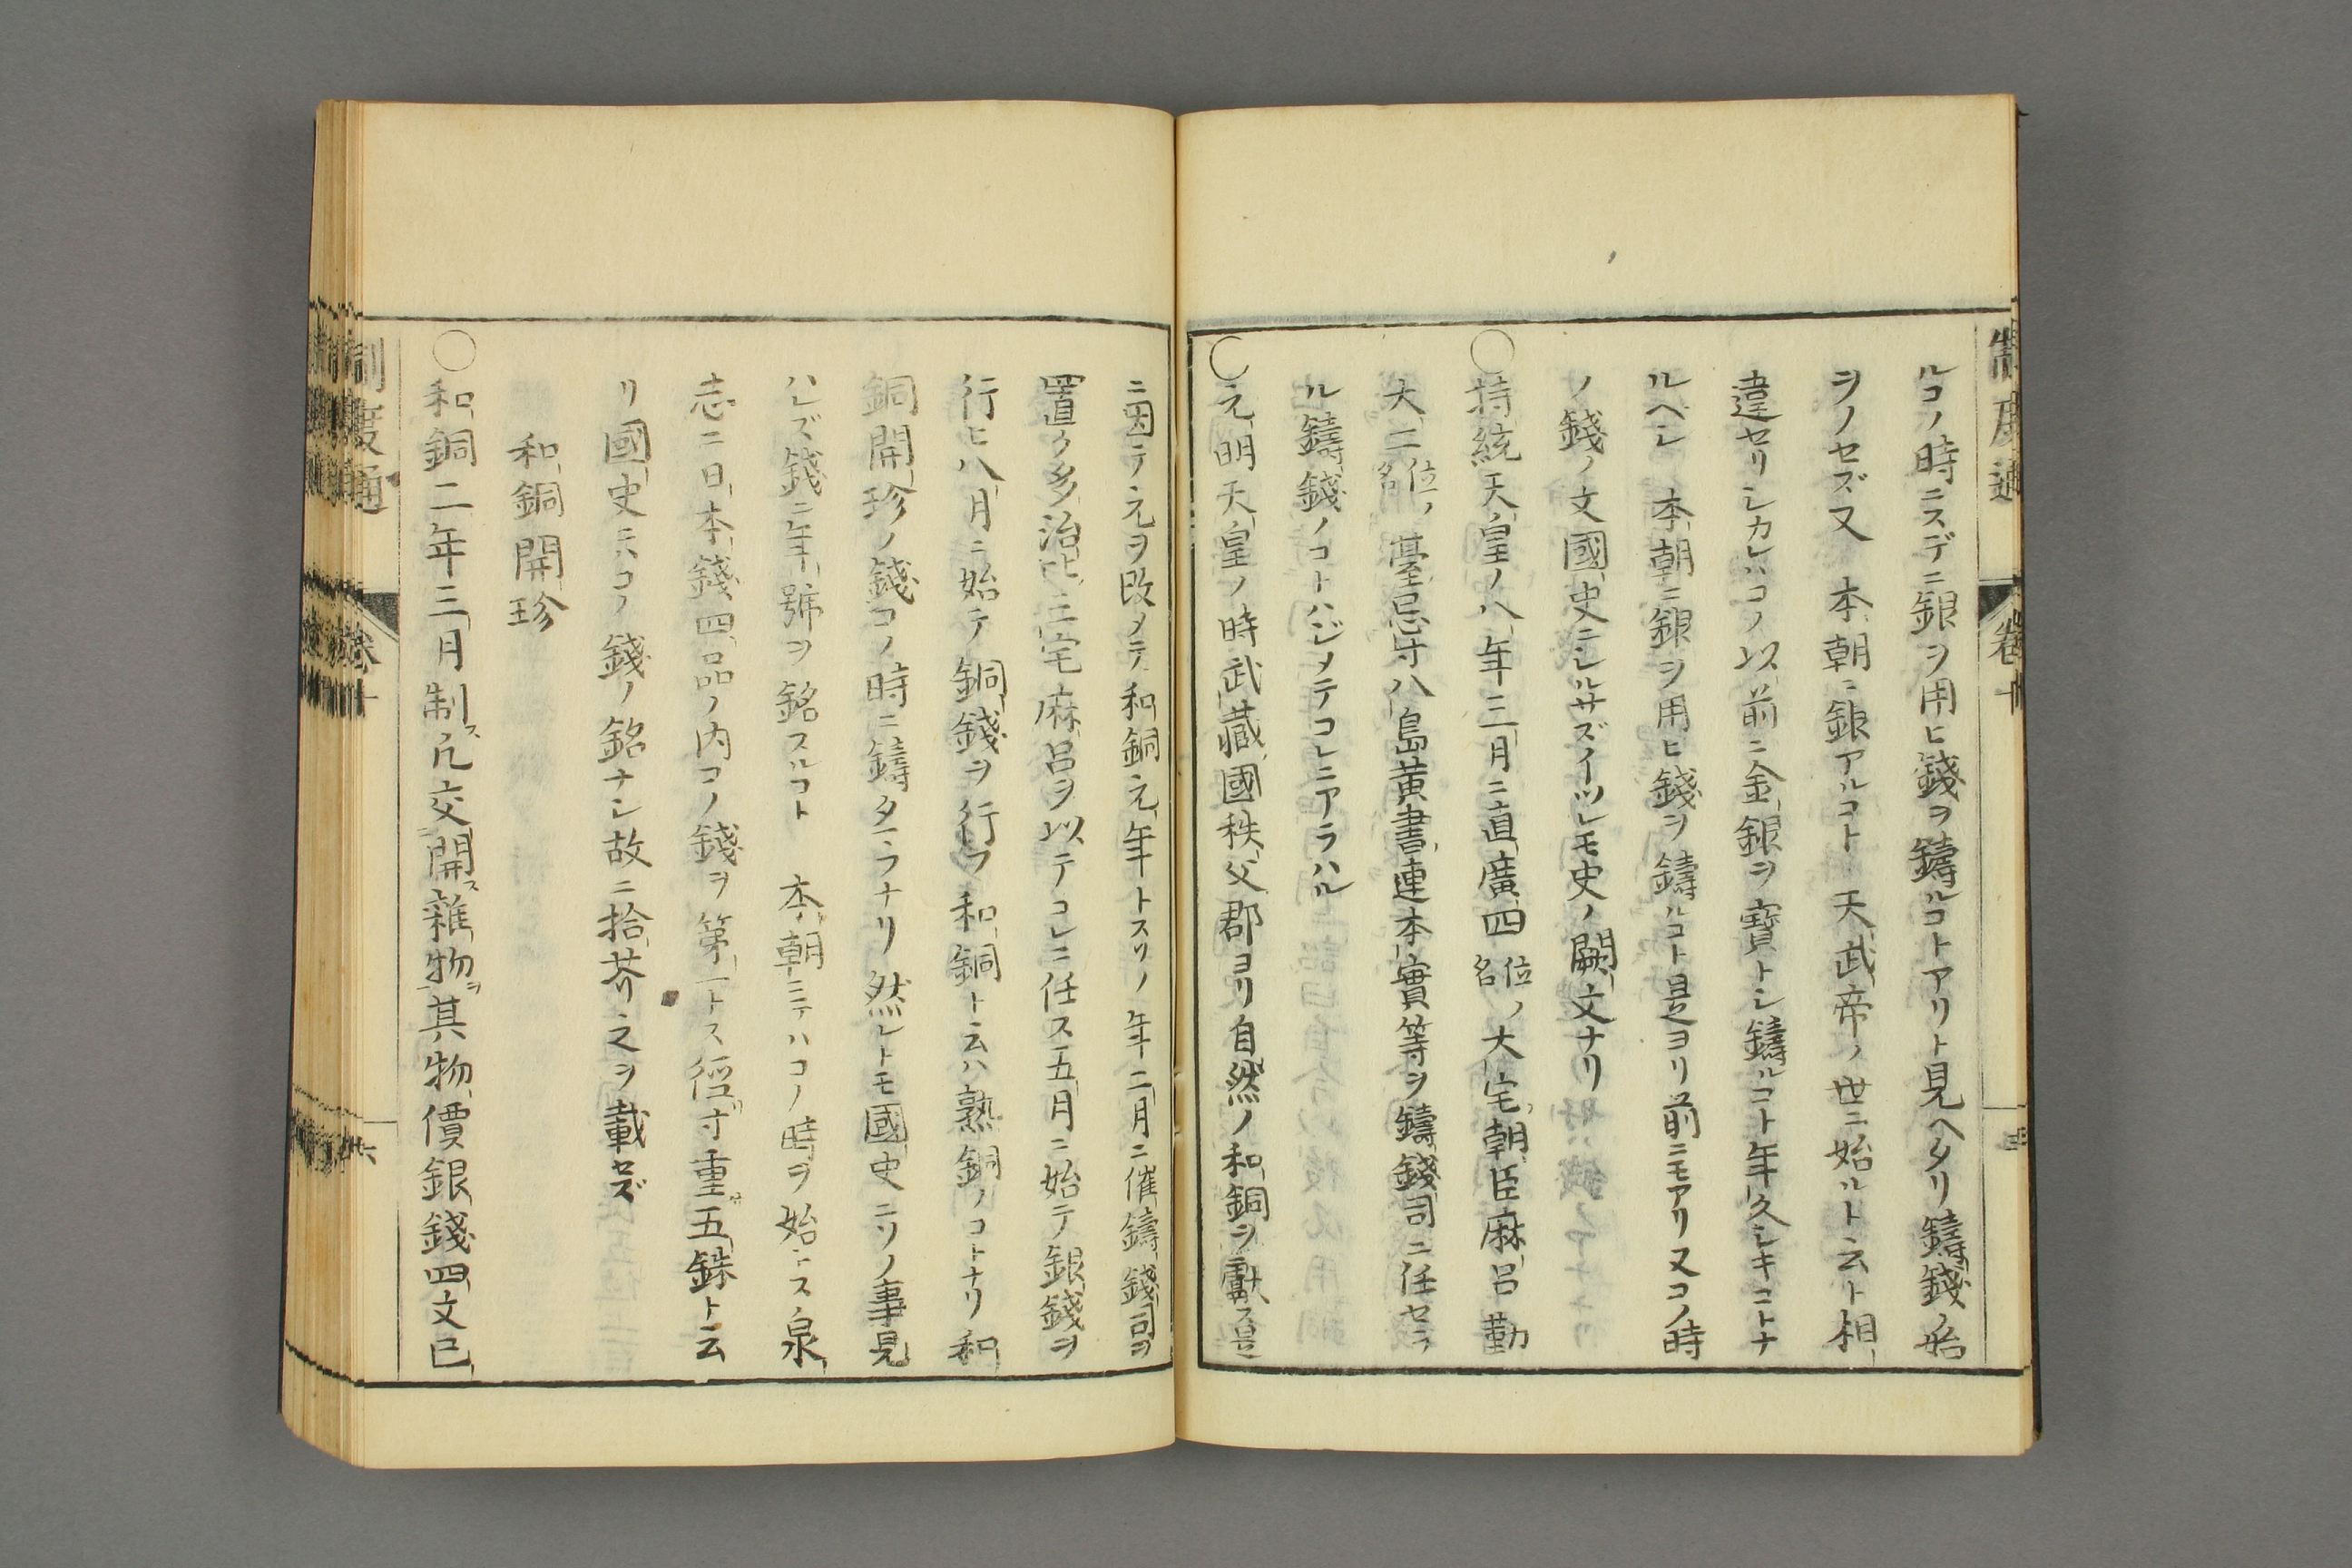 ルコノ時ニスデニ銀ヲ用ヒ錢ヲ鑄ルコトアリト見ヘタリ鑄錢ノ始
ヲノセズ又 本朝ニ銀アルコト 天武帝ノ世ニ始ルト云ト相
違セリシカレバコノ以前ニ金銀ヲ寶トシ鑄ルコト年久シキコトナ
ルヘシ 本朝ニ銀ヲ用ヒ錢ヲ鑄ルコト是ヨリ前ニモアリ又コノ時
ノ錢ノ文國史ニシルサズイツレモ史ノ闕文ナリ
○持統天皇ノ八年三月ニ直廣四位ノ名大宅朝臣麻呂勤
大二位ノ名臺忌寸八島黃書連本實等ヲ鑄錢司ニ任セラ
ル鑄錢ノコトハジメテコレニアラハル
○元明天皇ノ時武藏國秩父郡ヨリ自然ノ和銅ヲ獻ス是
ニ因テ元ヲ改メテ和銅元年トスソノ年二月ニ催鑄錢司ヲ
置ク多治比三宅麻呂ヲ以テコレニ任ス五月ニ始テ銀錢ヲ
行ヒ八月ニ始テ銅錢ヲ行フ和銅ト云ハ熟銅ノコトナリ和
銅開珍ノ錢コノ時ニ鑄タラナリ然レトモ國史ニソノ事見
ハレズ錢ニ年號ヲ銘スルコト 本朝ニテハコノ時ヲ始トス泉
志ニ日本錢四品ノ内コノ錢ヲ第一トス徑寸重サ五銖ト云
リ國史ニハコノ錢ノ銘ナシ故ニ拾芥ソ之ヲ載セズ
和銅開珍
○和銅二年三月制ス凡交開ス雜物ヲ其物價銀錢四文已
制度通 卷十 六